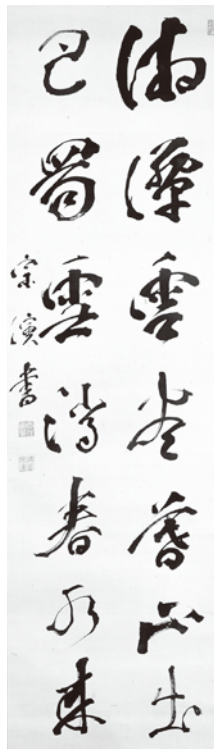 湘潭雲尽暮山出
巴蜀雪消春水来
宗演書